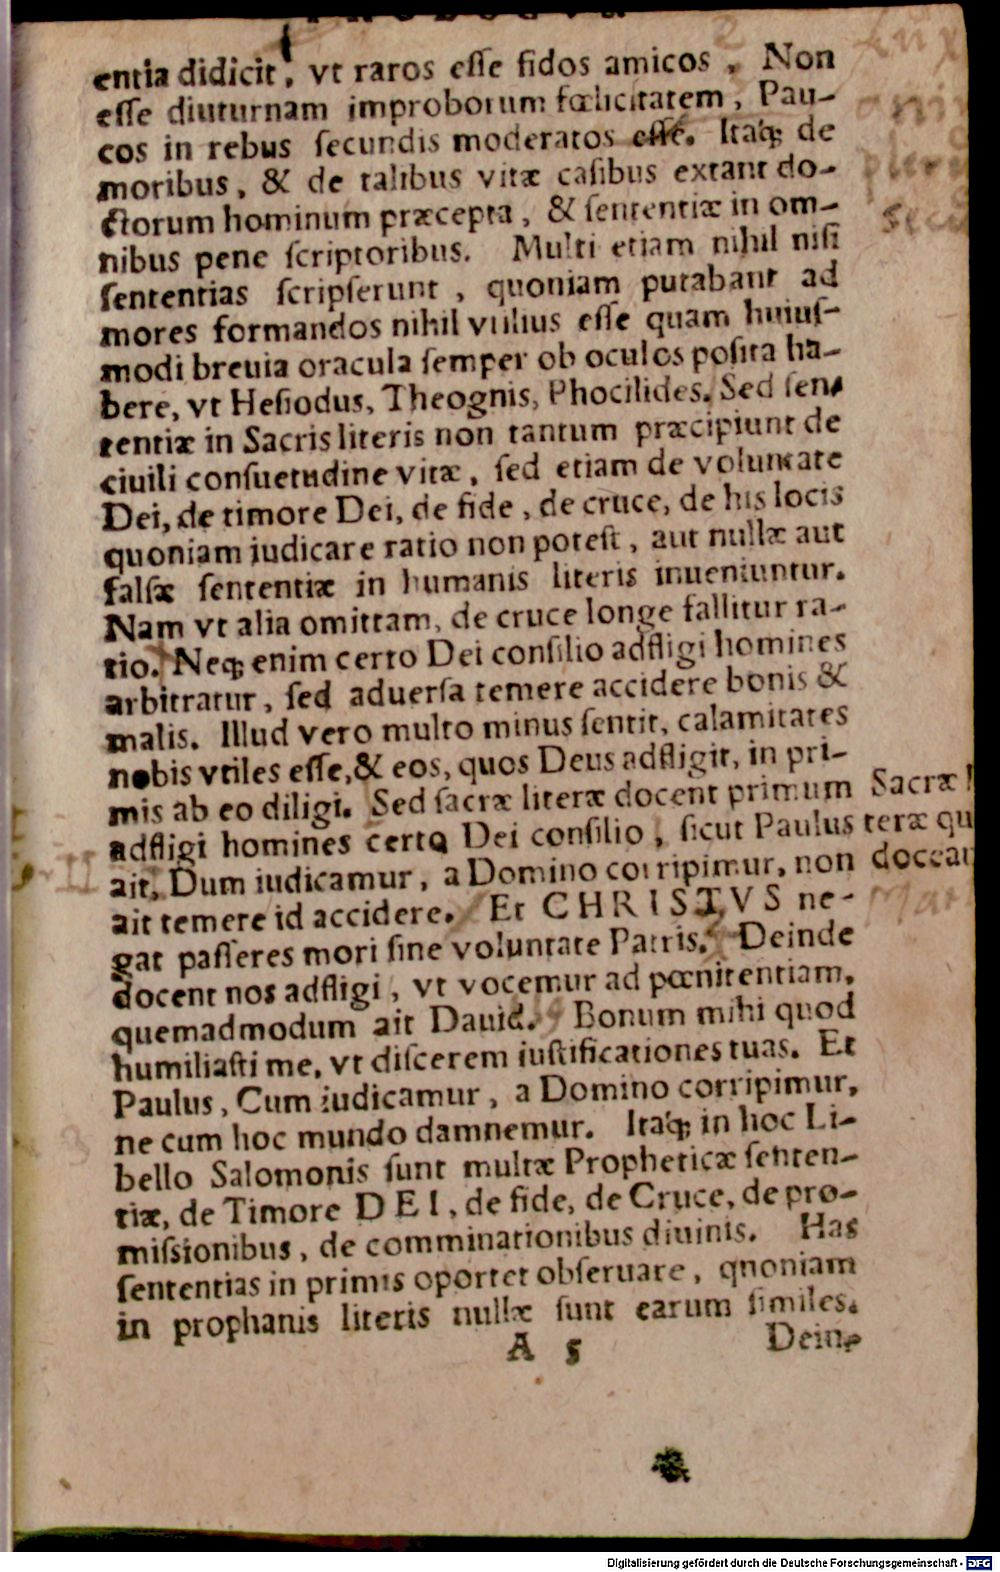 entia didicit, vt raros esse fidos amicos, Non
esse diuturnam improborum fœlicitatem, Pau-
cos in rebus secundis moderatos esse. Itaq; de
moribus, & de talibus vitæ casibus extant do-
ctorum hominum præcepta, & sententiæ in om-
nibus pene scriptoribus. Multi etiam nihil nisi
sententias scripserunt, quoniam putabant ad
mores formandos nihil vtilius esse quam huius-
modi breuia oracula semper ob oculos posita ha-
bere, vt Hesiodus, Theognis, Phocilides. Sed sen-
tentiæ in Sacris literis non tantum præcipiunt de
ciuili consuetudine vitæ, sed etiam de voluntate
Dei, de timore Dei, de fide, de cruce, de his locis
quoniam iudicare ratio non potest, aut nullæ aut
falsæ sententiæ in humanis literis inueniuntur.
Nam vt alia omittam, de cruce longe fallitur ra-
tio. Neq; enim certo Dei consilio adfligi homines
arbitratur, sed aduersa temere accidere bonis &
malis. Illud vero multo minus sentit, calamitates
nobis vtiles esse, & eos, quos Deus adfligit, in pri-
mis ab eo diligi. Sed sacræ literæ docent primum
adfligi homines certo Dei consilio, sicut Paulus
ait, Dum iudicamur, a Domino corripimur, non
ait temere id accidere. Et CHRISTVS ne-
gat passeres mori sine voluntate Patris. Deinde
docent nos adfligi, vt vocemur ad pœnitentiam,
quemadmodum ait Dauid. Bonum mihi quod
humiliasti me, vt discerem iustificationes tuas. Et
Paulus, Cum iudicamur, a Domino corripimur,
ne cum hoc mundo damnemur. Itaq; in hoc Li-
bello Salomonis sunt multæ Propheticæ senten-
tiæ, de Timore DEI, de fide, de Cruce, de pro-
missionibus, de comminationibus diuinis. Has
sententias in primis oportet obseruare, qnoniam
in prophanis literis nullæ sunt earum similes.
A 5 Dein-
Sacræ
teræ qu
doceat
Digitalisierung gefördert durch die Deutsche Forschungsgemeinschaft - DFG